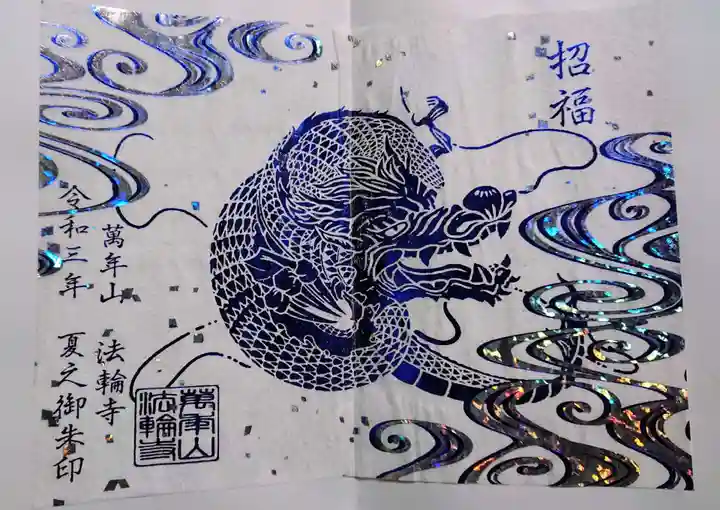 招福
萬年山 法輪寺
令和三年 夏之御朱印
萬年山
法輪寺